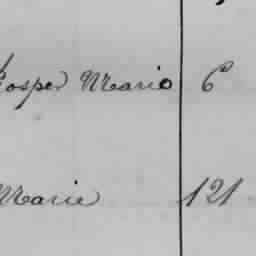 Prosper Mario 6
Marie 121